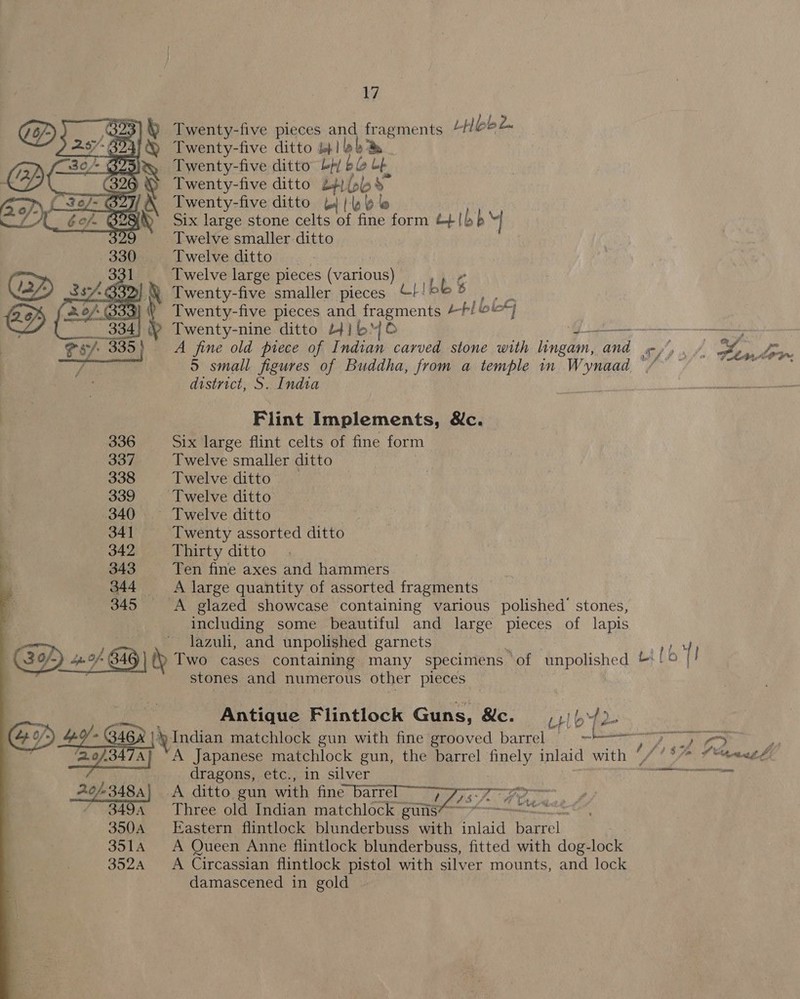 17
(10/-) 25/- 323 Twenty-five pieces and fragments 41662
324 Twenty-five ditto
(12/-) 30/- 325 Twenty-five ditto
326 Twenty-five ditto
(20/-) 30/- 327 Twenty-five ditto
60/- 328 Six large stone celts of fine form
329 Twelve smaller ditto
330 Twelve ditto
331 Twelve large pieces (various)
(12/-) 35/- 332 Twenty-five smaller pieces
(20/-) 20/- 333 Twenty-five pieces and fragments
334 Twenty-nine ditto 441640
335 A fine old piece of Indian carved stone with lingam, and
5 small figures of Buddha, from a temple in Wynaad
district, S. India
Flint Implements, &c.
336 Six large flint celts of fine form
337 Twelve smaller ditto
338 Twelve ditto
339 Twelve ditto
340 Twelve ditto
341 Twenty assorted ditto
342 Thirty ditto
343 Ten fine axes and hammers
344 A large quantity of assorted fragments
345 A glazed showcase containing various polished stones,
including some beautiful and large pieces of lapis
lazuli, and unpolished garnets
(30/-) 40/- 346 Two cases containing many specimens of unpolished
stones and numerous other pieces
Antique Flintlock Guns, &c.
(40/-) 40/- 346A Indian matchlock gun with fine grooved barrel
20/- 347A A Japanese matchlock gun, the barrel finely inlaid with
dragons, etc., in silver
20/- 348A A ditto gun with fine barrel
349A Three old Indian matchlock guns
350A Eastern flintlock blunderbuss with inlaid barrel
351A A Queen Anne flintlock blunderbuss, fitted with dog-lock
352A A Circassian flintlock pistol with silver mounts, and lock
damascened in gold